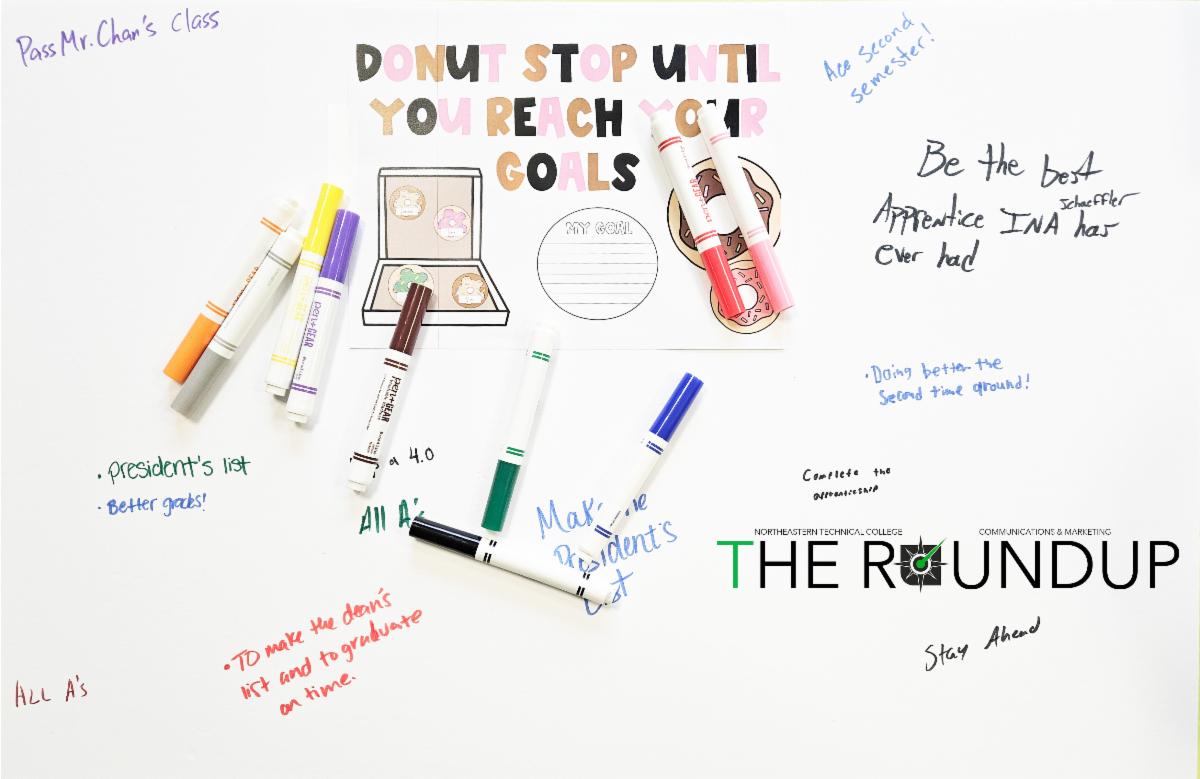 Pass Mr. Chan's Class
DONUT STOP UNTIL
YOU REACH YOUR
GOALS
MY GOAL
Ace second
semester!
Be the best
Apprentice INA Schaeffler has
ever had
• Doing better the
second time ground!
• president's list
• Better grades!
a 4.0
All A's
Make
President's
List
pen+GEAR
pen+GEAR
pen+GEAR
Complete the
apprenticeship
NORTHEASTERN TECHNICAL COLLEGE
COMMUNICATIONS & MARKETING
THE ROUNDUP
Stay Ahead
• TO make the dean's
list and to graduate
on time.
ALL A's